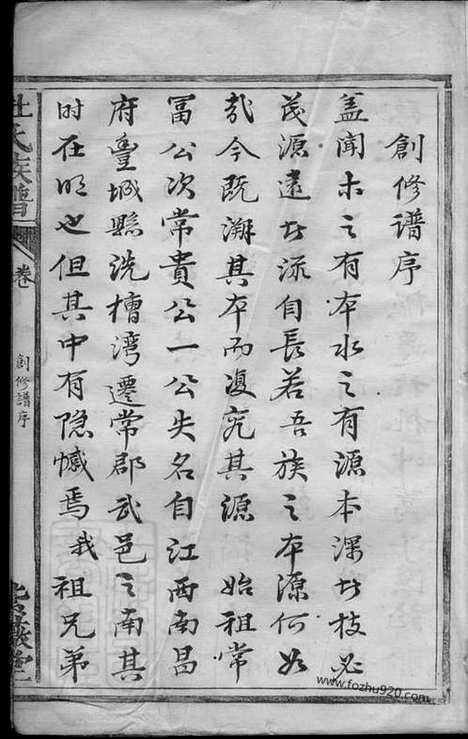 創修譜序
蓋聞木之有本水之有源本深者枝必
茂源遠者流自長若吾族之本源何如
哉今既溯其本而復究其源 始祖常
冨公次常貴公一公失名自江西南昌
府豐城縣洗槽灣遷常郡武邑之南其
时在明也但其中有隐憾焉我祖兄弟
氏族譜
卷
創修譜序
堂
www.fozhu920.com